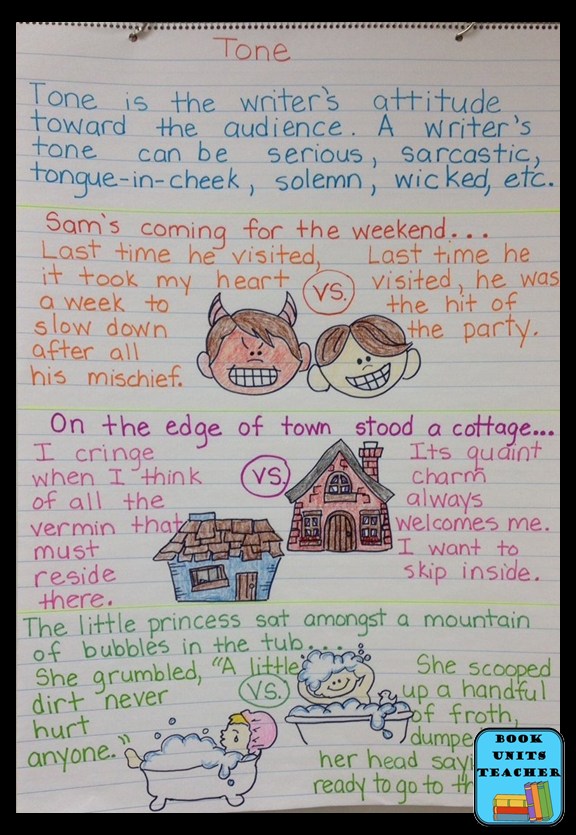 Tone
Tone is the writer's attitude
toward the audience. A writer's
tone can be serious, sarcastic,
tongue-in-cheek, solemn, wicked, etc.
Sam's coming for the weekend...
Last time he visited,
it took my heart
a week to
slow down
after all
his mischief.
vs.
Last time he
visited, he was
the hit of
the party.
On the edge of town stood a cottage...
I cringe
when I think
of all the
vermin that
must
reside
there.
vs.
Its quaint
charm
always
welcomes me.
I want to
skip inside.
The little princess sat amongst a mountain
of bubbles in the tub...
She grumbled, "A little
dirt never
hurt
anyone."
vs.
She scooped
up a handful
of froth,
her head
ready to go to
BOOK
UNITS
TEACHER